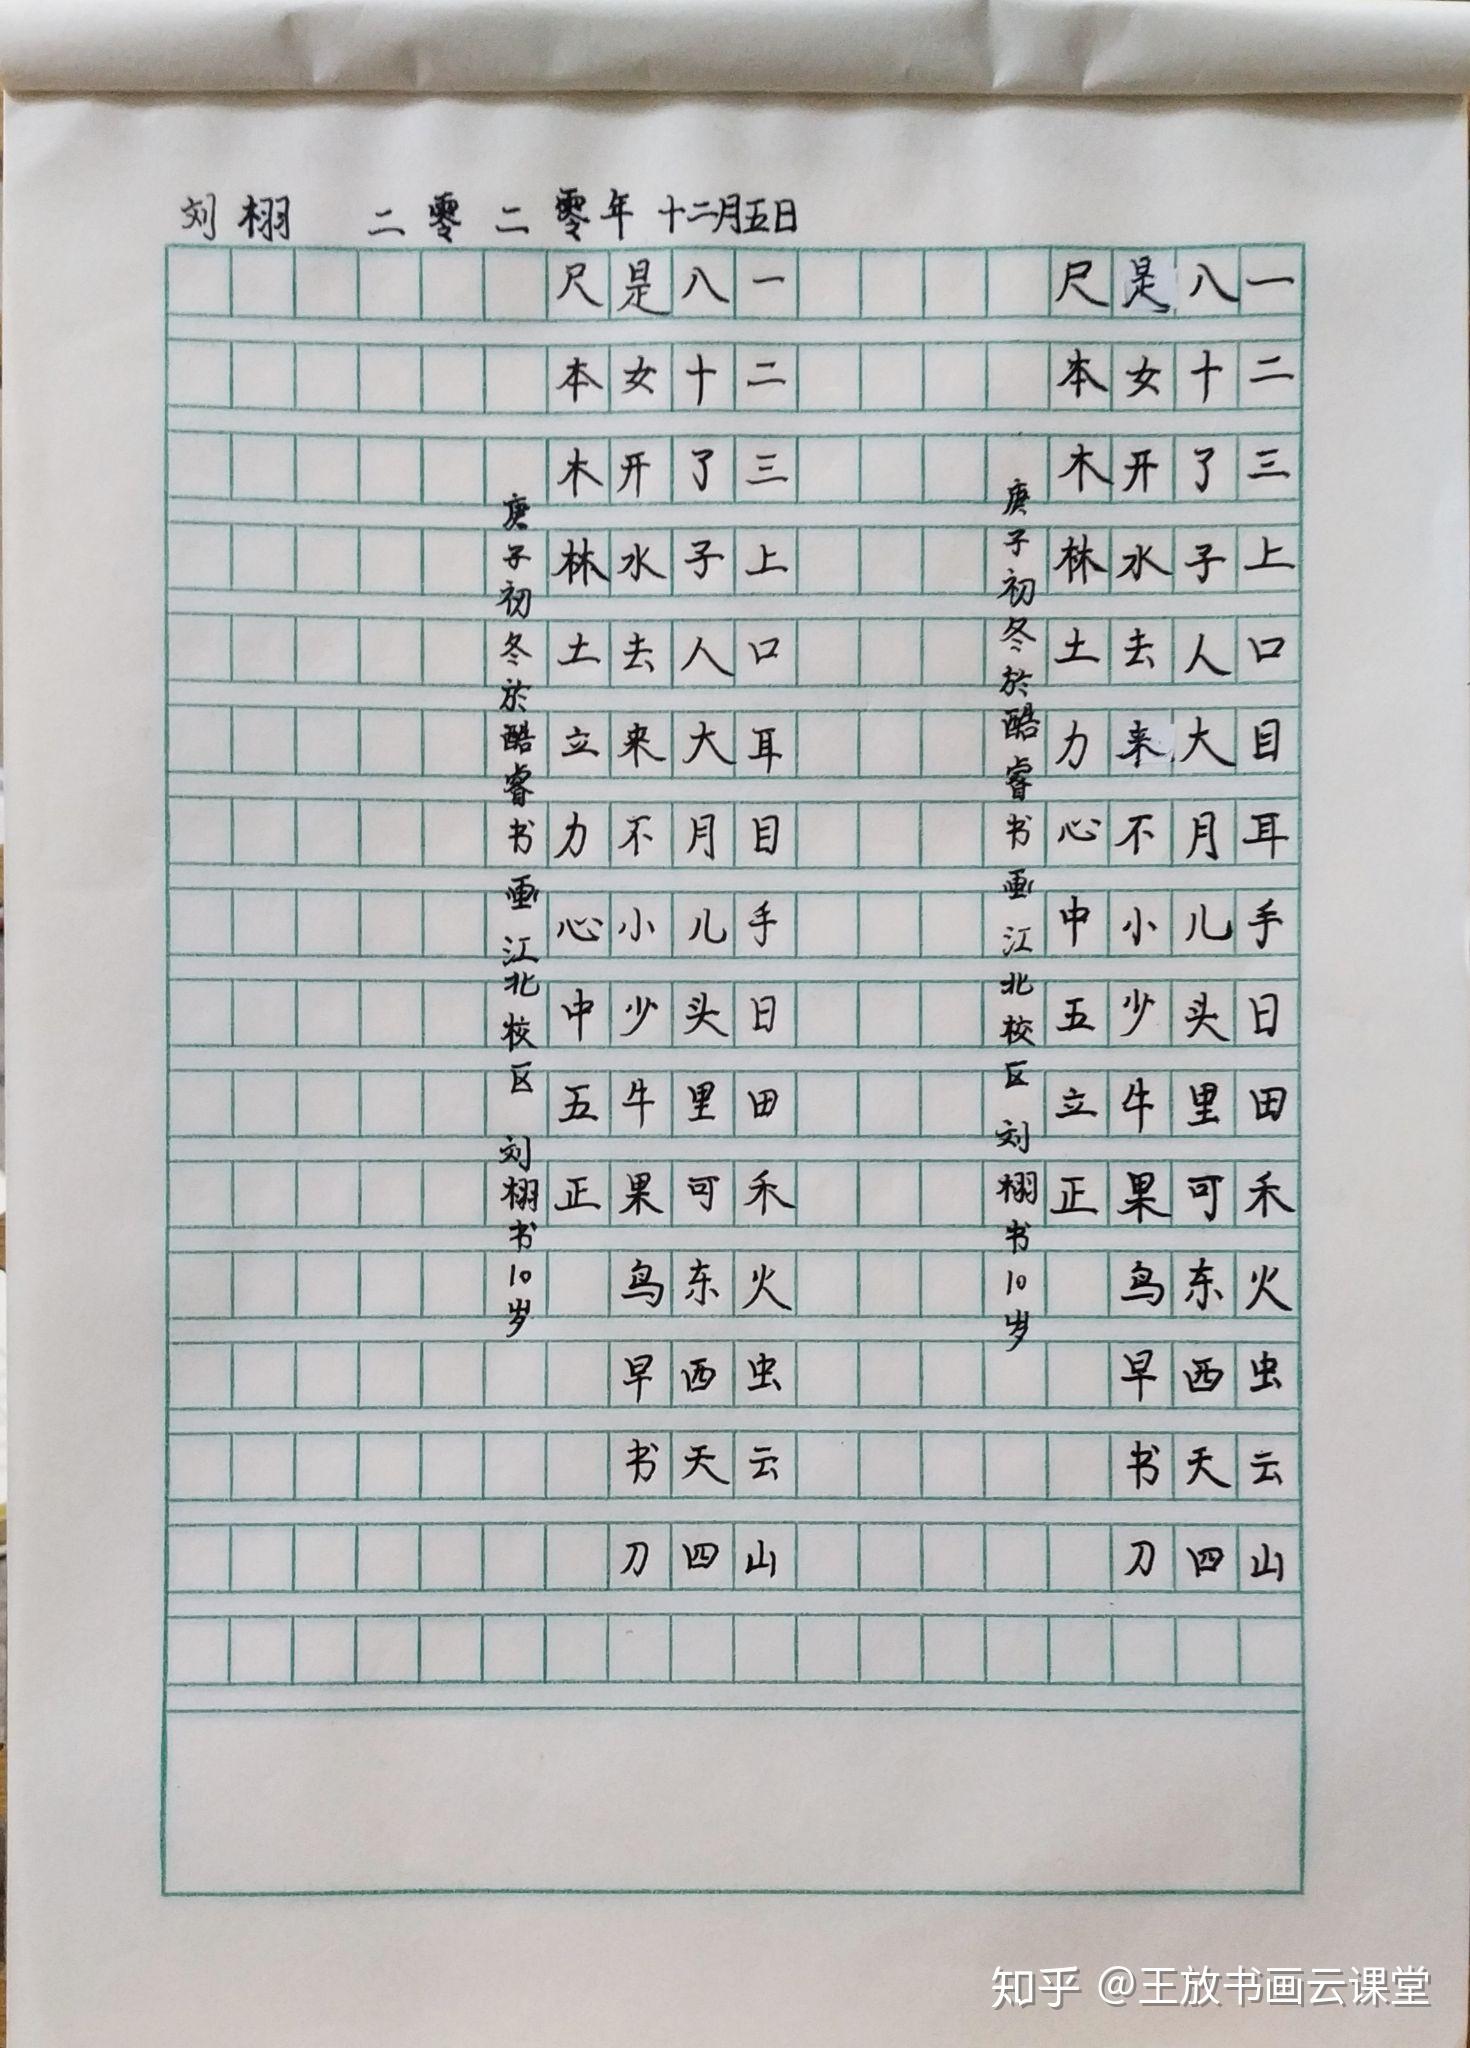 刘栩 二零二零年十二月五日
一二三上口目耳手日田禾火虫云山
八十了子人大月儿头里可东西天四
是女开水去来不小少牛果鸟早书刀
尺本木林土力心中五立正
庚子初冬於酷睿书画江北校区 刘栩书10岁
一二三上口耳目手日田禾火虫云山
八十了子人大月儿头里可东西天四
是女开水去来不小少牛果鸟早书刀
尺本木林土立力心中五正
庚子初冬於酷睿书画江北校区 刘栩书10岁
知乎 @王放书画云课堂